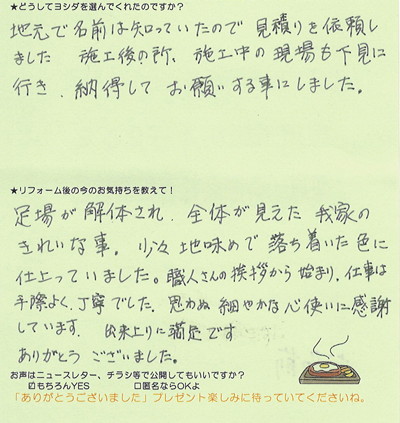 ★どうしてヨシダを選んでくれたのですか？
地元で名前は知っていたので 見積りを依頼し
ました 施工後の所、施工中の現場も下見に
行き、納得して お願いする事にしました。
★リフォーム後の今のお気持ちを教えて！
足場が 解体され、全体が見えた 我家の
きれいな事。 少々 地味めで 落ち着いた 色に
仕上っていました。職人さんの挨拶から 始まり、仕事は
手際よく、丁寧でした。思わぬ 細やかな 心使いに感謝
しています。 出来上りに 満足です
ありがとう ございました。
お声はニュースレター、チラシ等で公開してもいいですか？
☑もちろんYES □匿名ならOKよ
「ありがとうございました」プレゼント楽しみに待っていてくださいね。